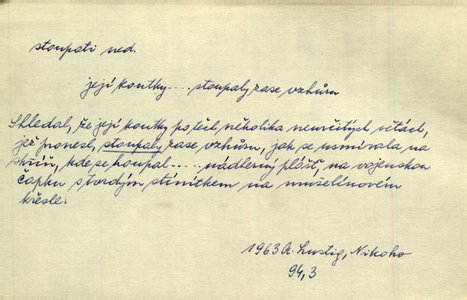 stoupati ned.
její koutky.... stoupaly zase vzhůru
Shledal, že její koutky po těch několika neurčitých větách,
jež pronesl, stoupaly zase vzhůru, jak se usmívala na
skříň, kde se houpal.... nádherný plášť, na vojenskou
čapku s tvrdým stínítkem na mušelínovém
křesle.
1963 A. Lustig, Nikoho
94,3